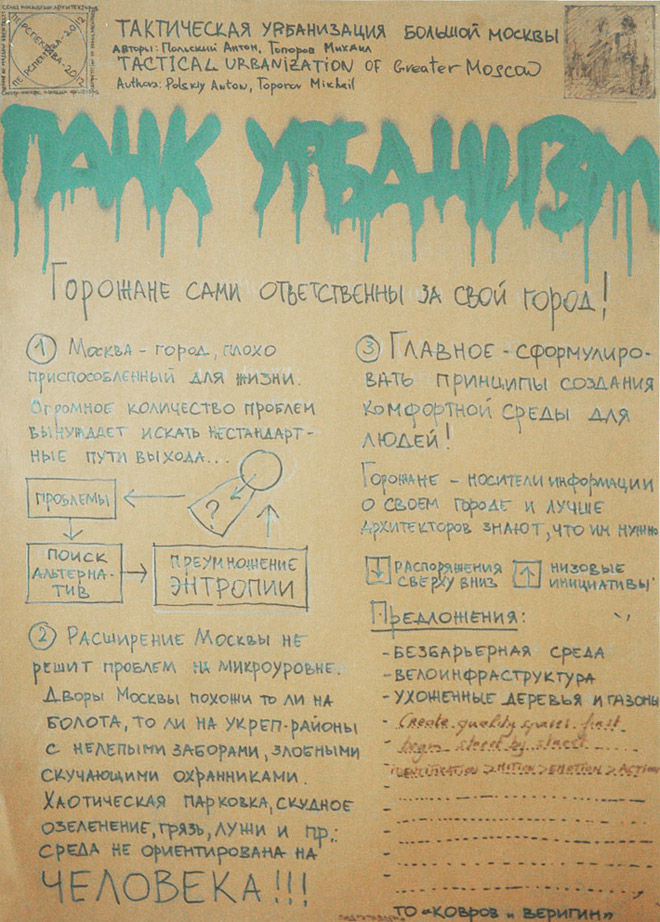 ПЕРСПЕКТИВА-2012
ПЕРСПЕКТИВА-2012
ТАКТИЧЕСКАЯ УРБАНИЗАЦИЯ БОЛЬШОЙ МОСКВЫ
Авторы: Польский Антон, Топоров Михаил
TACTICAL URBANIZATION OF Greater Moscow
Authors: Polskiy Anton, Toporov Mikhail
ПАНК УРБАНИЗМ
Горожане сами ответственны за свой город!
1 Москва - город, плохо
приспособленный для жизни.
Огромное количество проблем
вынуждает искать нестандарт-
ные пути выхода...
?
ПРОБЛЕМЫ
ПОИСК
АЛЬТЕРНА-
ТИВ
ПРЕУМНОЖЕНИЕ
ЭНТРОПИИ
2 Расширение Москвы не
решит проблем на микроуровне.
Дворы Москвы похожи то ли на
болота, то ли на укреп-районы
с нелепыми заборами, злобными
скучающими охранниками.
Хаотическая парковка, скудное
озеленение, грязь, лужи и пр.:
среда не ориентирована на
ЧЕЛОВЕКА!!!
3 Главное - сформулиро-
вать принципы создания
комфортной среды для
людей!
Горожане - носители информации
о своем городе и лучше
архитекторов знают, что им нужно
РАСПОРЯЖЕНИЯ
СВЕРХУ ВНИЗ
НИЗОВЫЕ
ИНИЦИАТИВЫ
Предложения:
- БЕЗБАРЬЕРНАЯ СРЕДА
- ВЕЛОИНФРАСТРУКТУРА
- УХОЖЕННЫЕ ДЕРЕВЬЯ И ГАЗОНЫ
- Create quality spaces first
- begin street by street
- IDENTIFICATION > MOTION > EMOTION > ACTION
ТО "КОВРОВ И ВЕРИГИН"